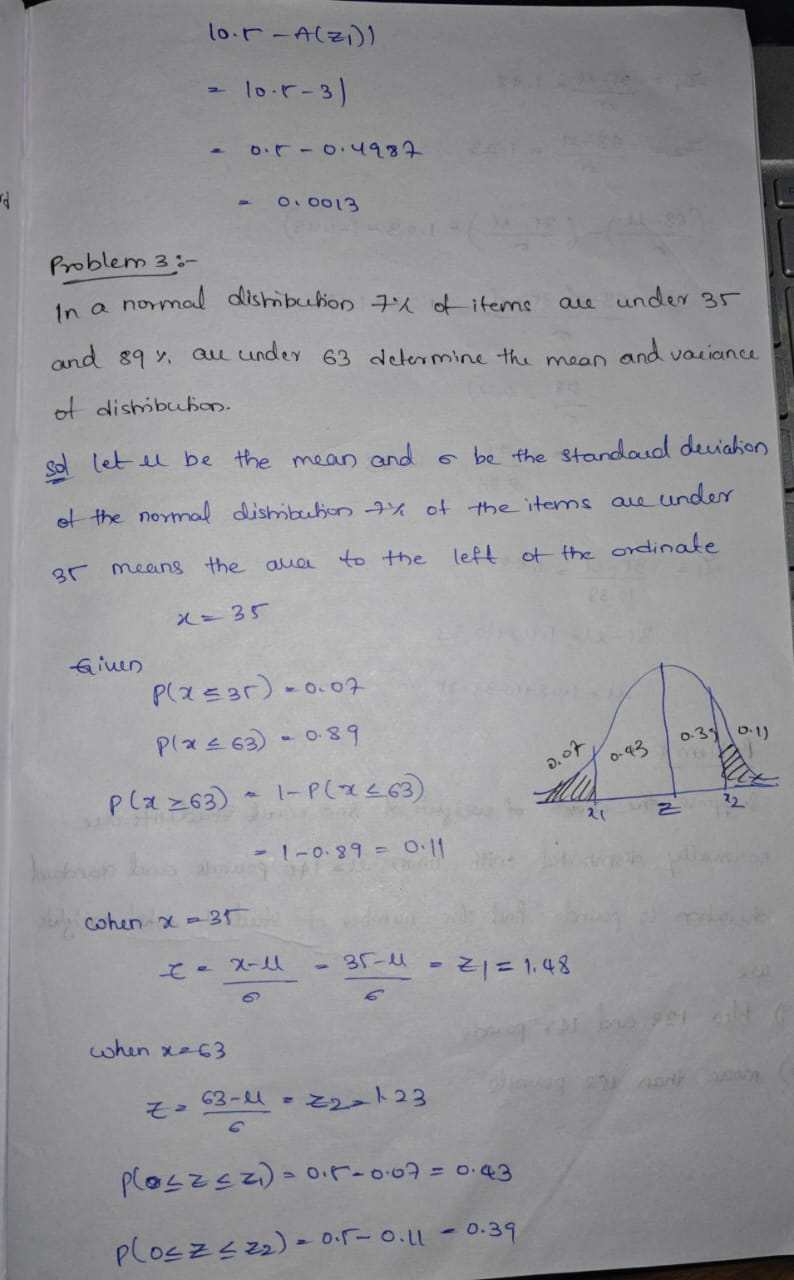 |0.5 - A(z1)|
= |0.5 - 3|
= 0.5 - 0.4987
= 0.0013
Problem 3 :-
In a normal distribution 7% of items are under 35
and 89 % are under 63 determine the mean and variance
of distribution.
Sol let μ be the mean and σ be the standard deviation
of the normal distribution 7% of the items are under
35 means the area to the left of the ordinate
x = 35
Given
P(x ≤ 35) = 0.07
P(x ≤ 63) = 0.89
P(x ≥ 63) = 1 - P(x ≤ 63)
= 1 - 0.89 = 0.11
0.07 0.43 0.39 0.11
z1 z z2
when x = 35
z = x-μ/σ = 35-μ/σ = z1 = 1.48
when x = 63
z = 63-μ/σ = z2 = 1.23
P(0 ≤ z ≤ z1) = 0.5 - 0.07 = 0.43
P(0 ≤ z ≤ z2) = 0.5 - 0.11 = 0.39